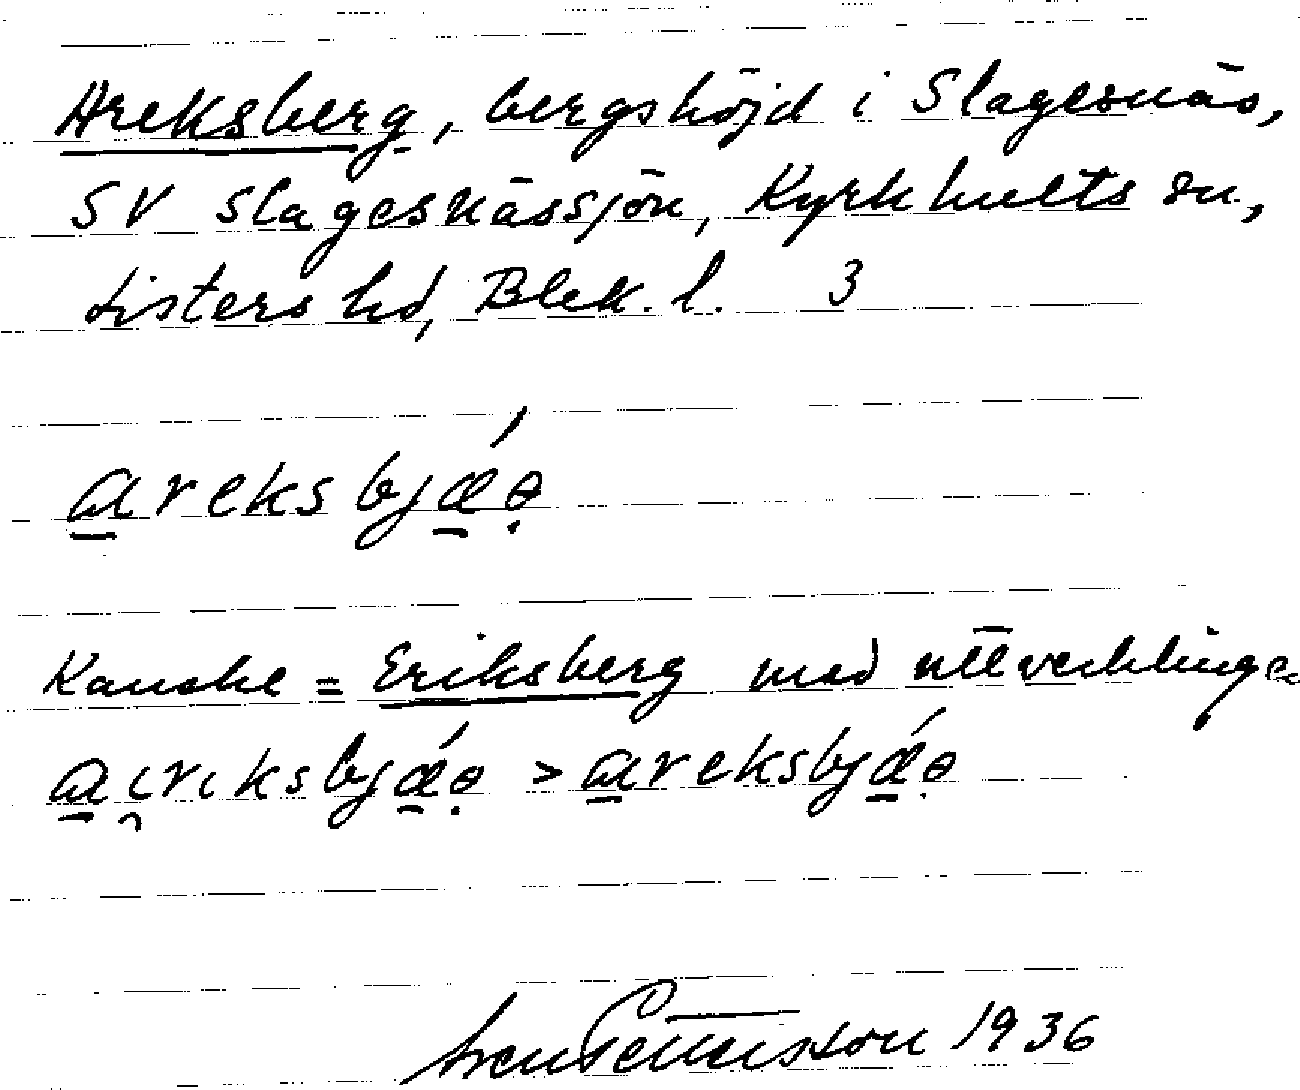 Areksberg, bergshöjd i Slagesnäs,
SV Slagesnässjön, Kyrkhults sn,
Listers hd, Blek. l. 3
areksbjǽə̣
Kanske = Eriksberg med utvecklingen
ai̯riksbjǽə̣ > areksbjǽə̣
Sven Pettersson 1936